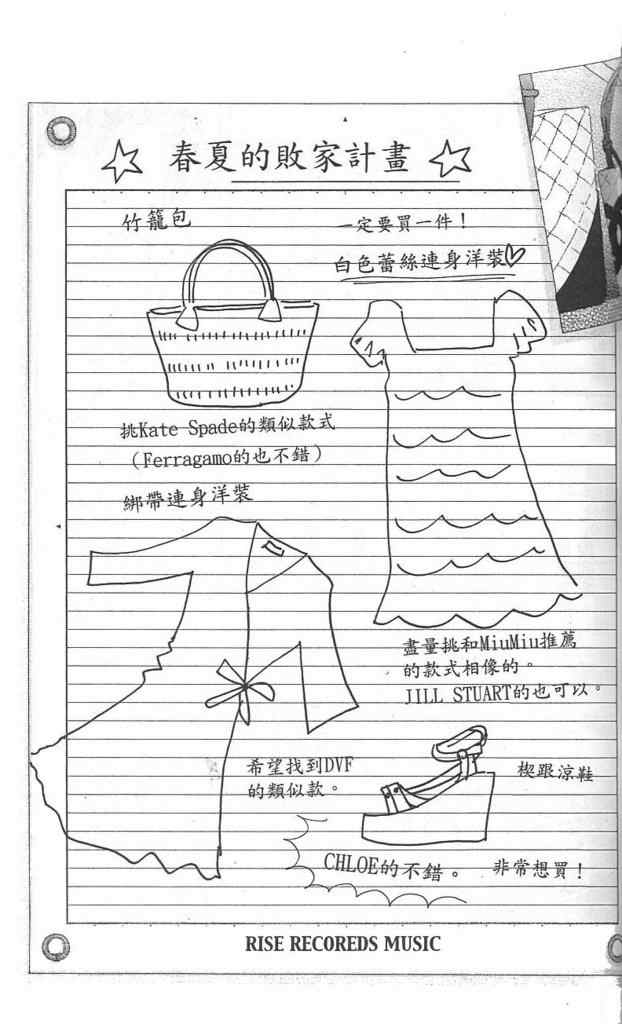 春夏的敗家計畫
竹籠包
一定要買一件！
白色蕾絲連身洋裝♡
挑Kate Spade的類似款式
（Ferragamo的也不錯）
綁帶連身洋裝
盡量挑和MiuMiu推薦
的款式相像的。
JILL STUART的也可以。
希望找到DVF
的類似款。
楔跟涼鞋
CHLOE的不錯。
非常想買！
RISE RECOREDS MUSIC